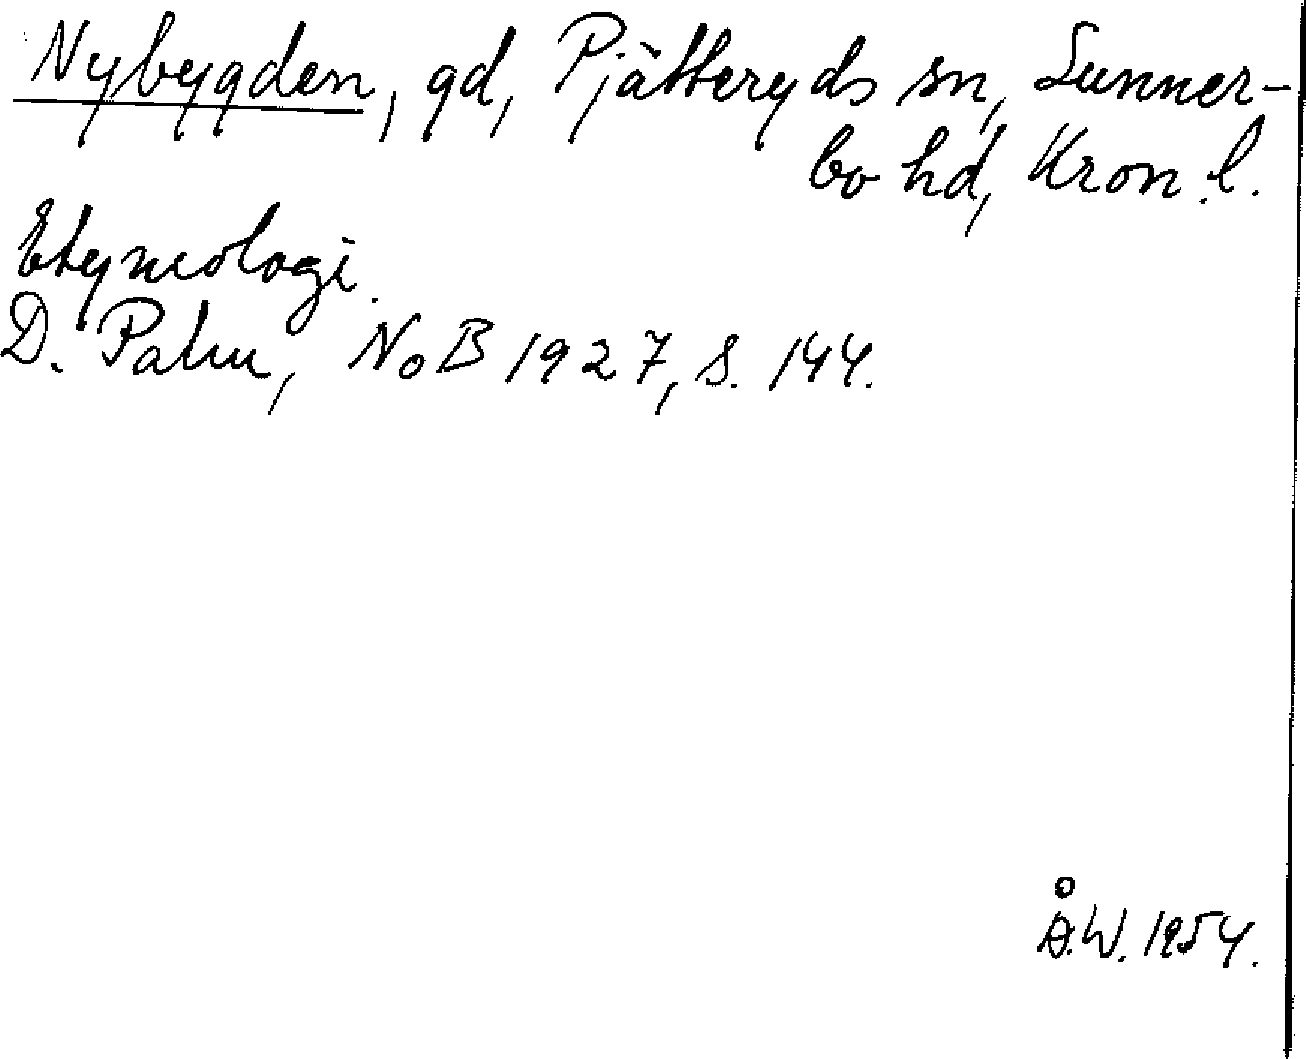 Nybygden, gd, Pjätteryds sn, Sunner-
bo hd, Kron. l.
Etymologi.
D. Palm, NoB 1927, S. 144.
Å.W. 1954.